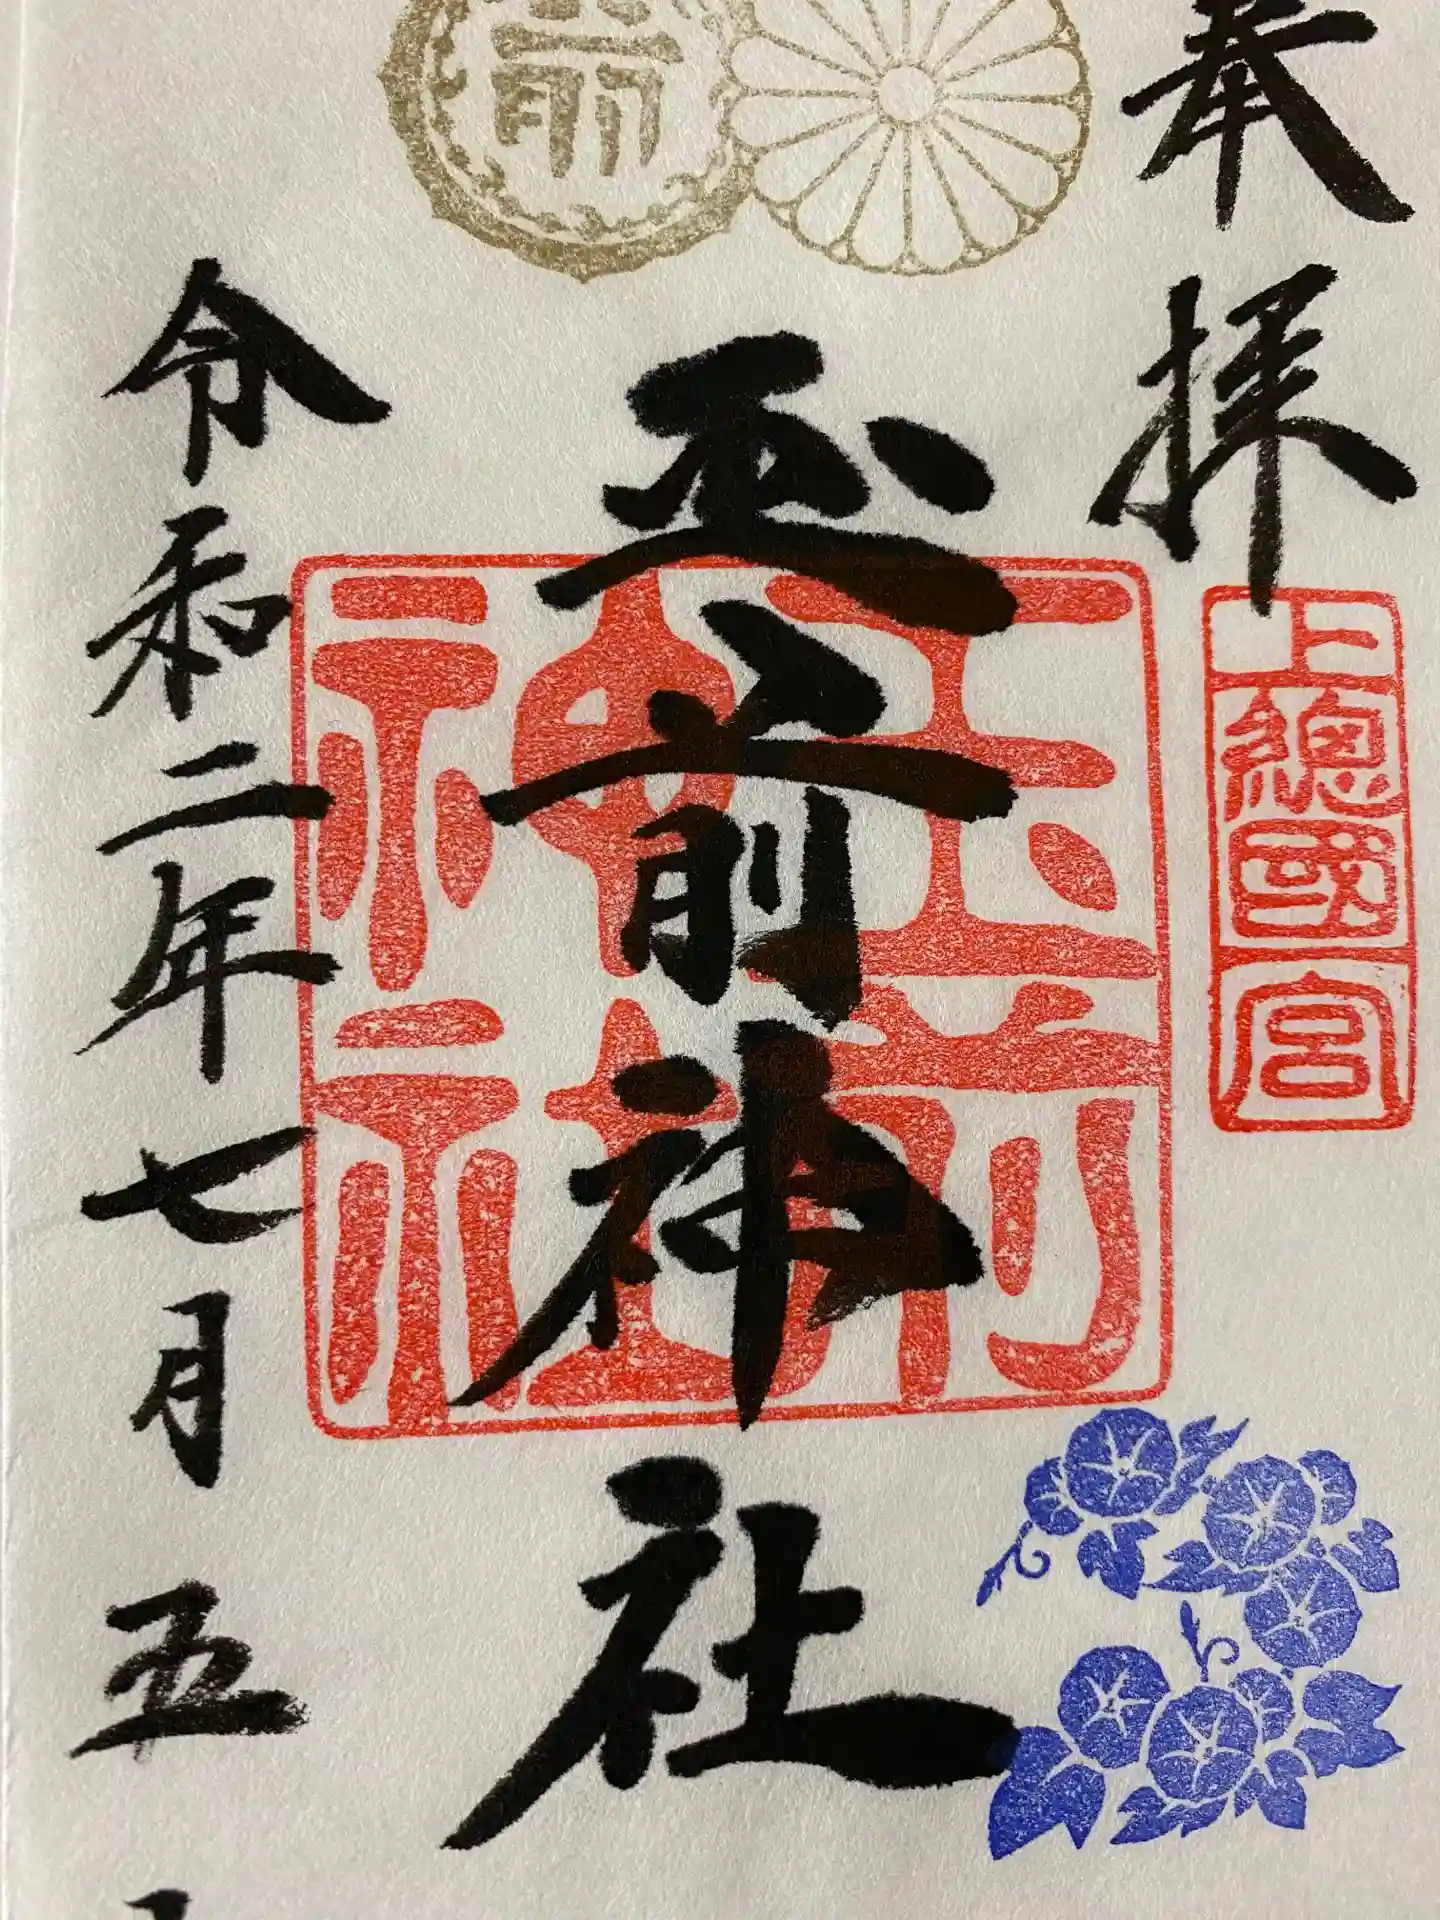 奉拝
上總國一宮
玉前神社
玉前
神社
令和二年七月五